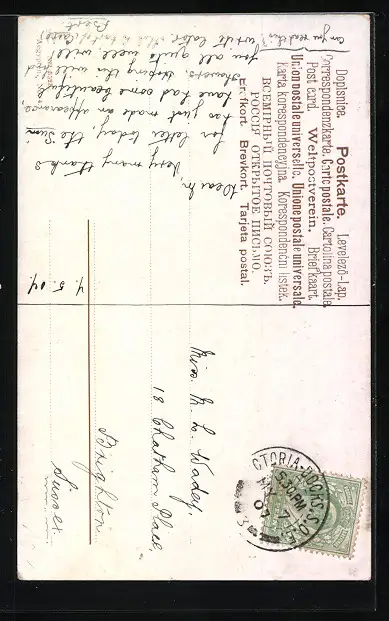 Dopisnice. Postkarte. Levelező-Lap.
Correspondenzkarte. Carte postale. Cartolina postale.
Post card. Weltpostverein. Briefkaart.
Union postale universelle. Unione postale universale.
Karta korespondencyjna. Korespondenční lístek.
ВСЕМІРНЫЙ ПОЧТОВЫЙ СОЮЗЪ.
РОССІЯ. ОТКРЫТОЕ ПИСЬМО.
Brefkort. Brevkort. Tarjeta postal.
can you read this?
Dear
Very many thanks
for letter today, the Sun
has just made an appearance,
have had some beautiful
showers. Hoping this will find
you all quite well, will
write later.
Bert.
4.5.04
CTORIA-DOCKS.S.O.
5.30PM
MY 4
04
3
Miss M. L. Wadey,
18 Chatham Place,
Brighton
Sussex